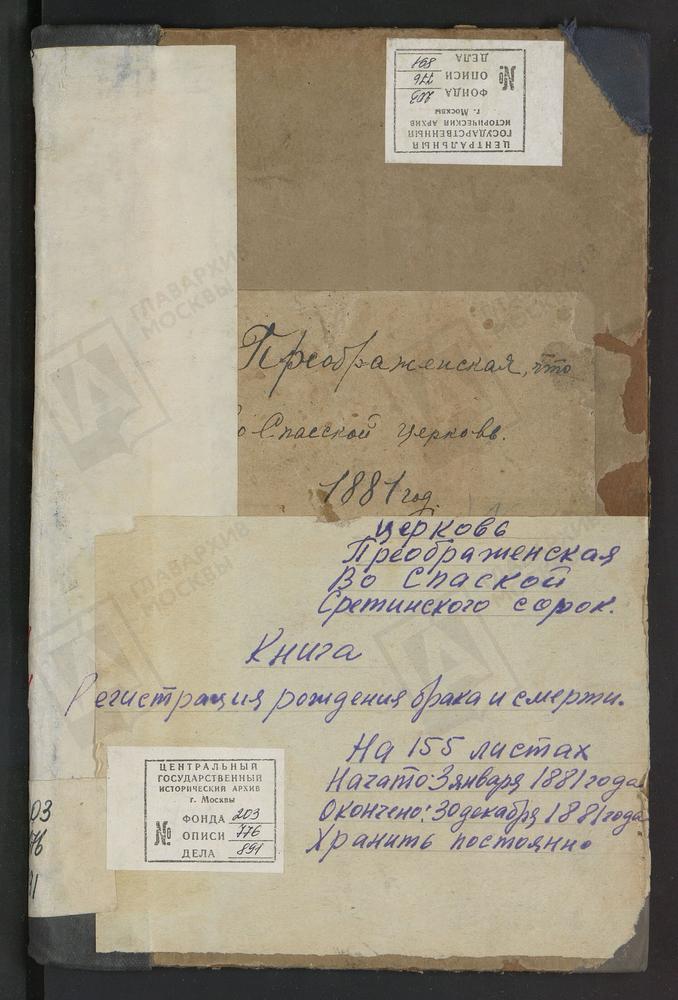 ЦЕНТРАЛЬНЫЙ
ГОСУДАРСТВЕННЫЙ
ИСТОРИЧЕСКИЙ АРХИВ
г. Москвы
№ ФОНДА 203
ОПИСИ 776
ДЕЛА 891
Преображенская, что
о Спасской церковь.
1881 год.
церковь
Преображенская
Во Спаской
Сретинского сорок.
Книга
Регистрация рождения брака и смерти.
На 155 листах
Начато: 3 января 1881 года
Окончено: 30 декабря 1881 года
Хранить постоянно
ЦЕНТРАЛЬНЫЙ
ГОСУДАРСТВЕННЫЙ
ИСТОРИЧЕСКИЙ АРХИВ
г. Москвы
№ ФОНДА 203
ОПИСИ 776
ДЕЛА 891
03
76
91
ГЛАВАРХИВ
МОСКВЫ